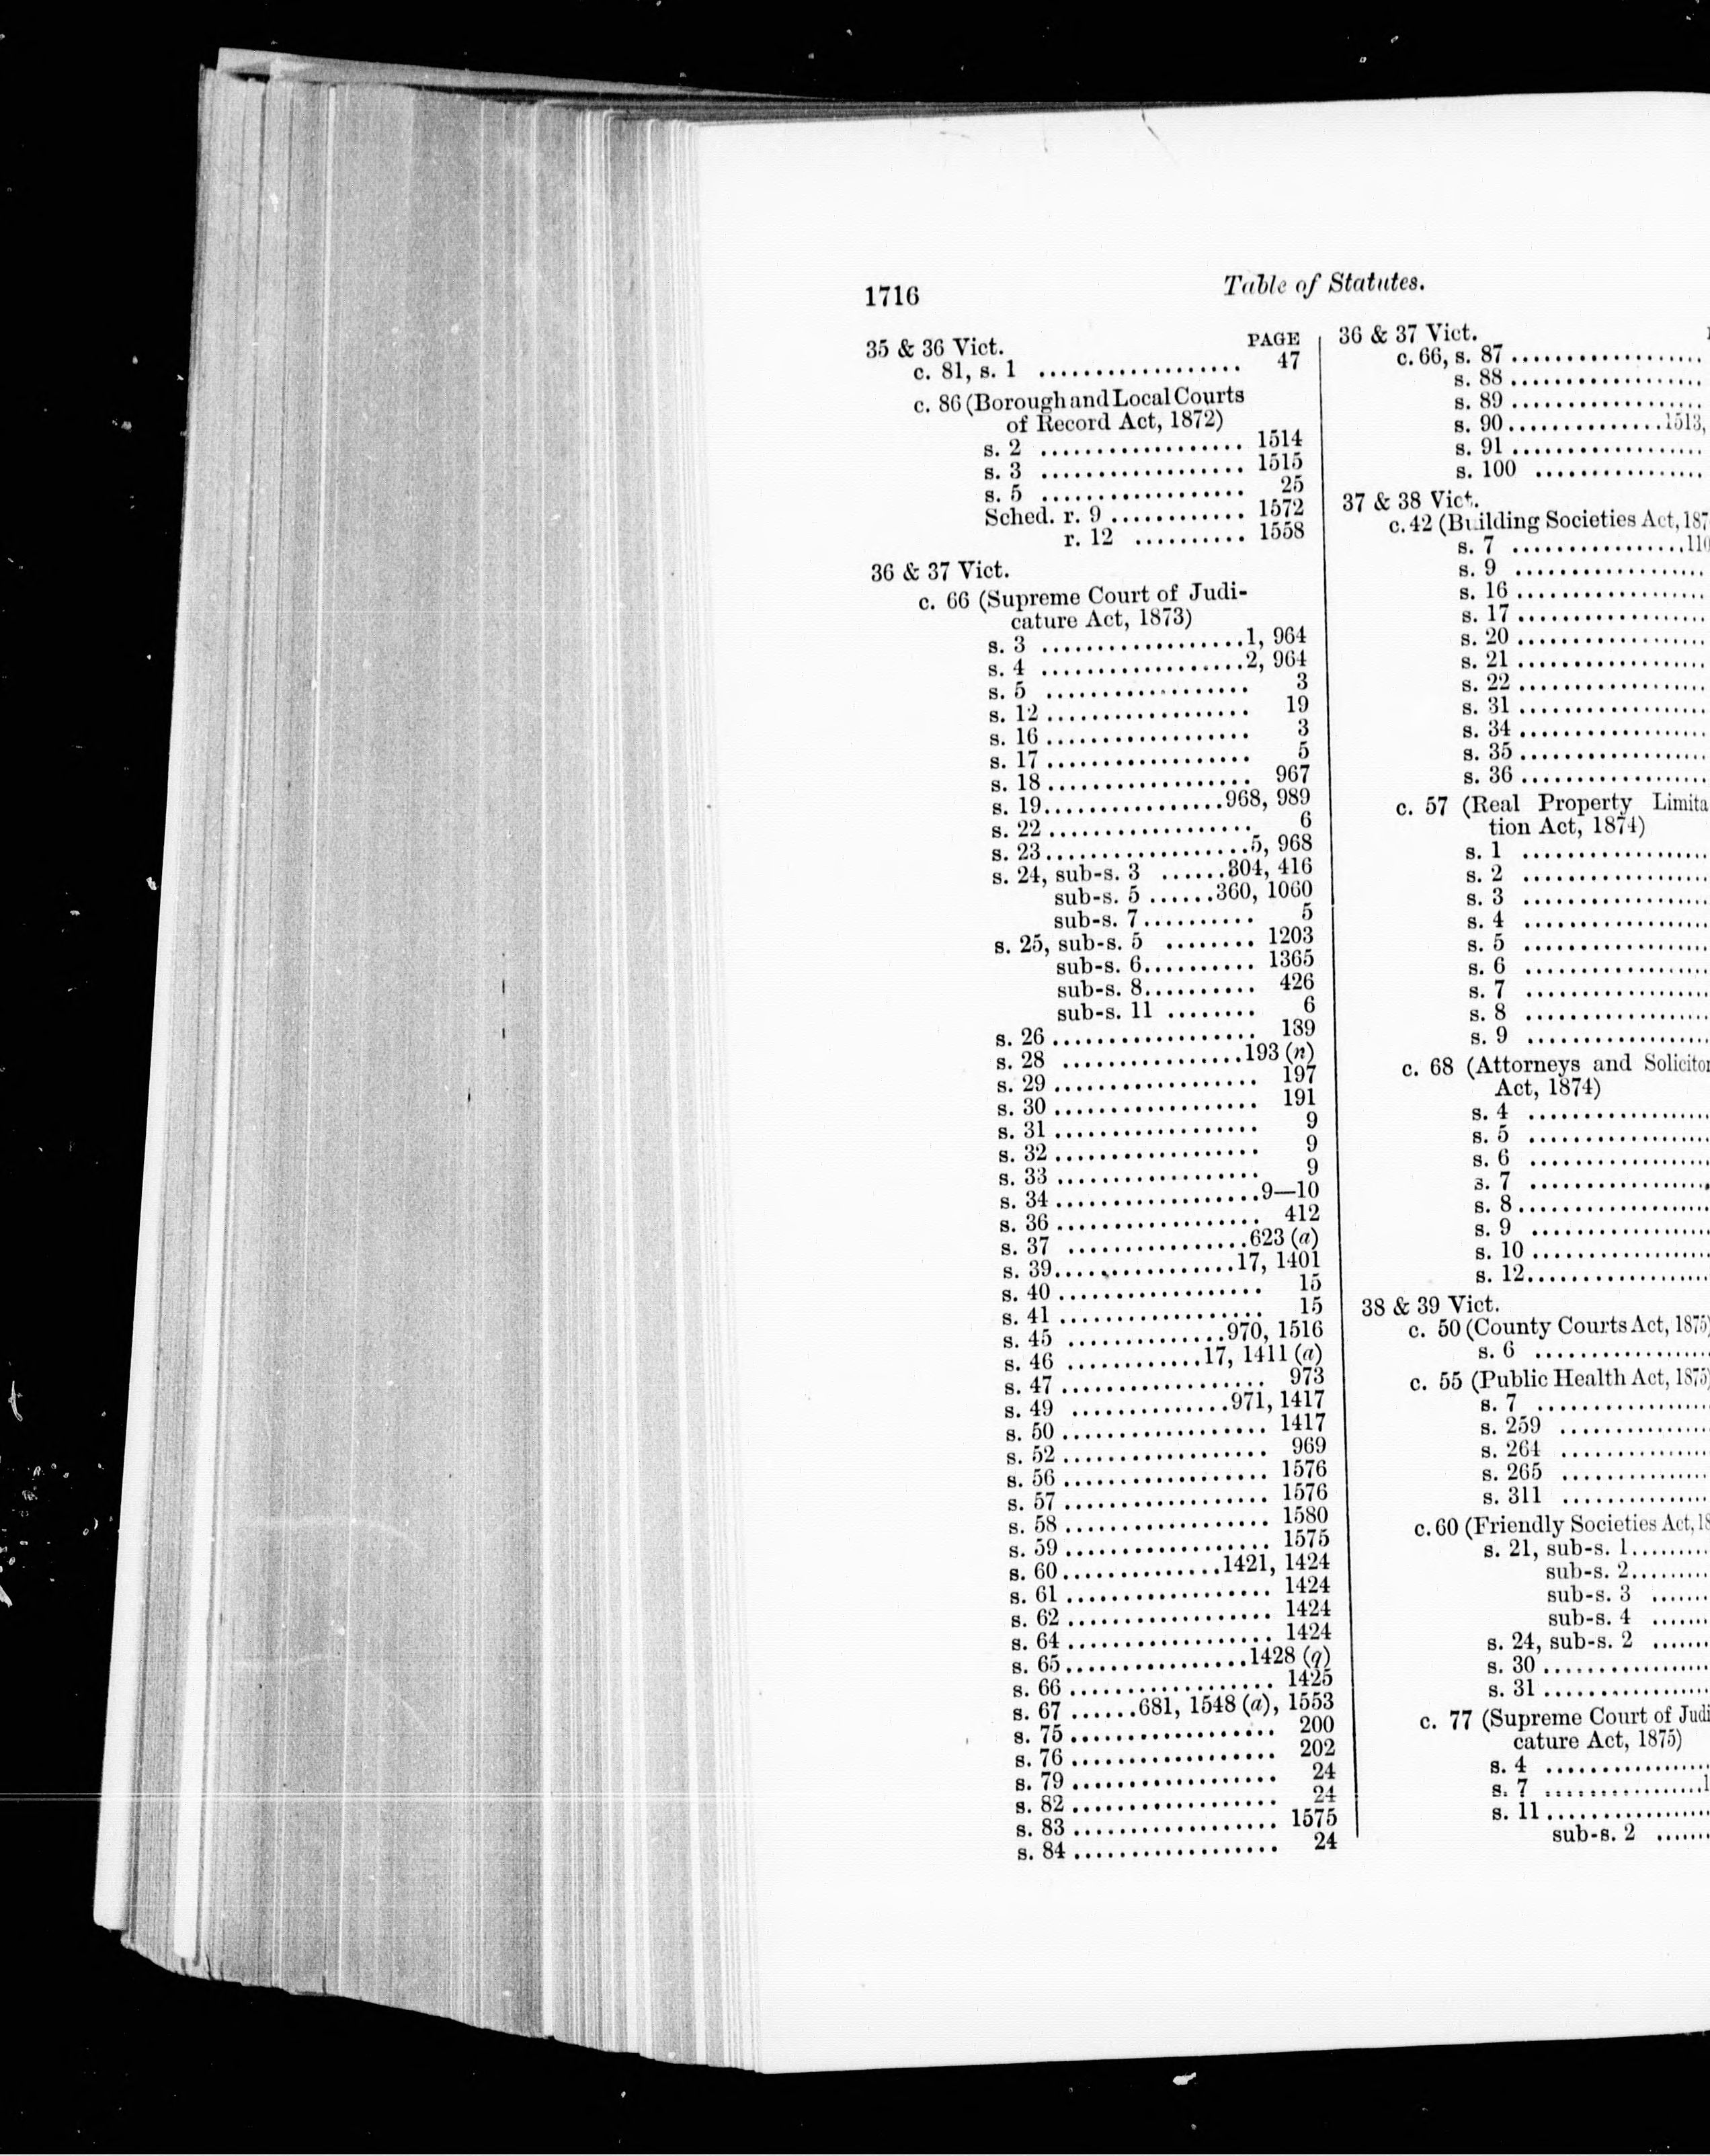 1716
Table of Statutes.
35 & 36 Vict. PAGE
c. 81, s. 1 .................. 47
c. 86 (Borough and Local Courts
of Record Act, 1872)
s. 2 .................. 1514
s. 3 .................. 1515
s. 5 .................. 25
Sched. r. 9 ............ 1572
r. 12 .......... 1558
36 & 37 Vict.
c. 66 (Supreme Court of Judi-
cature Act, 1873)
s. 3 ..................1, 964
s. 4 ..................2, 964
s. 5 .................. 3
s. 12 .................. 19
s. 16 .................. 3
s. 17 .................. 5
s. 18 .................. 967
s. 19................968, 989
s. 22 .................. 6
s. 23..................5, 968
s. 24, sub-s. 3 ......304, 416
sub-s. 5 ......360, 1060
sub-s. 7.......... 5
s. 25, sub-s. 5 ........ 1203
sub-s. 6.......... 1365
sub-s. 8.......... 426
sub-s. 11 ........ 6
s. 26 .................. 139
s. 28 ................193 (n)
s. 29 .................. 197
s. 30 .................. 191
s. 31 .................. 9
s. 32 .................. 9
s. 33 .................. 9
s. 34 ..................9—10
s. 36 .................. 412
s. 37 ................623 (a)
s. 39..................17, 1401
s. 40 .................. 15
s. 41 .................. 15
s. 45 ..............970, 1516
s. 46 ............17, 1411 (a)
s. 47 .................. 973
s. 49 ..............971, 1417
s. 50 .................. 1417
s. 52 .................. 969
s. 56 .................. 1576
s. 57 .................. 1576
s. 58 .................. 1580
s. 59 .................. 1575
s. 60..............1421, 1424
s. 61 .................. 1424
s. 62 .................. 1424
s. 64 .................. 1424
s. 65................1428 (q)
s. 66 .................. 1425
s. 67 ......681, 1548 (a), 1553
s. 75 .................. 200
s. 76 .................. 202
s. 79 .................. 24
s. 82 .................. 24
s. 83 .................. 1575
s. 84 .................. 24
36 & 37 Vict.
c. 66, s. 87 ..................
s. 88 ..................
s. 89 ..................
s. 90..............1513,
s. 91 ..................
s. 100 ................
37 & 38 Vict.
c. 42 (Building Societies Act, 187
s. 7 ................110
s. 9 ..................
s. 16 ..................
s. 17 ..................
s. 20 ..................
s. 21 ..................
s. 22 ..................
s. 31 ..................
s. 34 ..................
s. 35 ..................
s. 36 ..................
c. 57 (Real Property Limita
tion Act, 1874)
s. 1 ..................
s. 2 ..................
s. 3 ..................
s. 4 ..................
s. 5 ..................
s. 6 ..................
s. 7 ..................
s. 8 ..................
s. 9 ..................
c. 68 (Attorneys and Solicitor
Act, 1874)
s. 4 ..................
s. 5 ..................
s. 6 ..................
s. 7 ..................
s. 8..................
s. 9 ..................
s. 10 ..................
s. 12..................
38 & 39 Vict.
c. 50 (County Courts Act, 1875)
s. 6 ..................
c. 55 (Public Health Act, 1875)
s. 7 ..................
s. 259 ................
s. 264 ................
s. 265 ................
s. 311 ................
c. 60 (Friendly Societies Act, 18
s. 21, sub-s. 1........
sub-s. 2........
sub-s. 3 ......
sub-s. 4 ......
s. 24, sub-s. 2 ......
s. 30 ..................
s. 31 ..................
c. 77 (Supreme Court of Judi
cature Act, 1875)
s. 4 ..................
s. 7 ................1
s. 11 ..................
sub-s. 2 .......